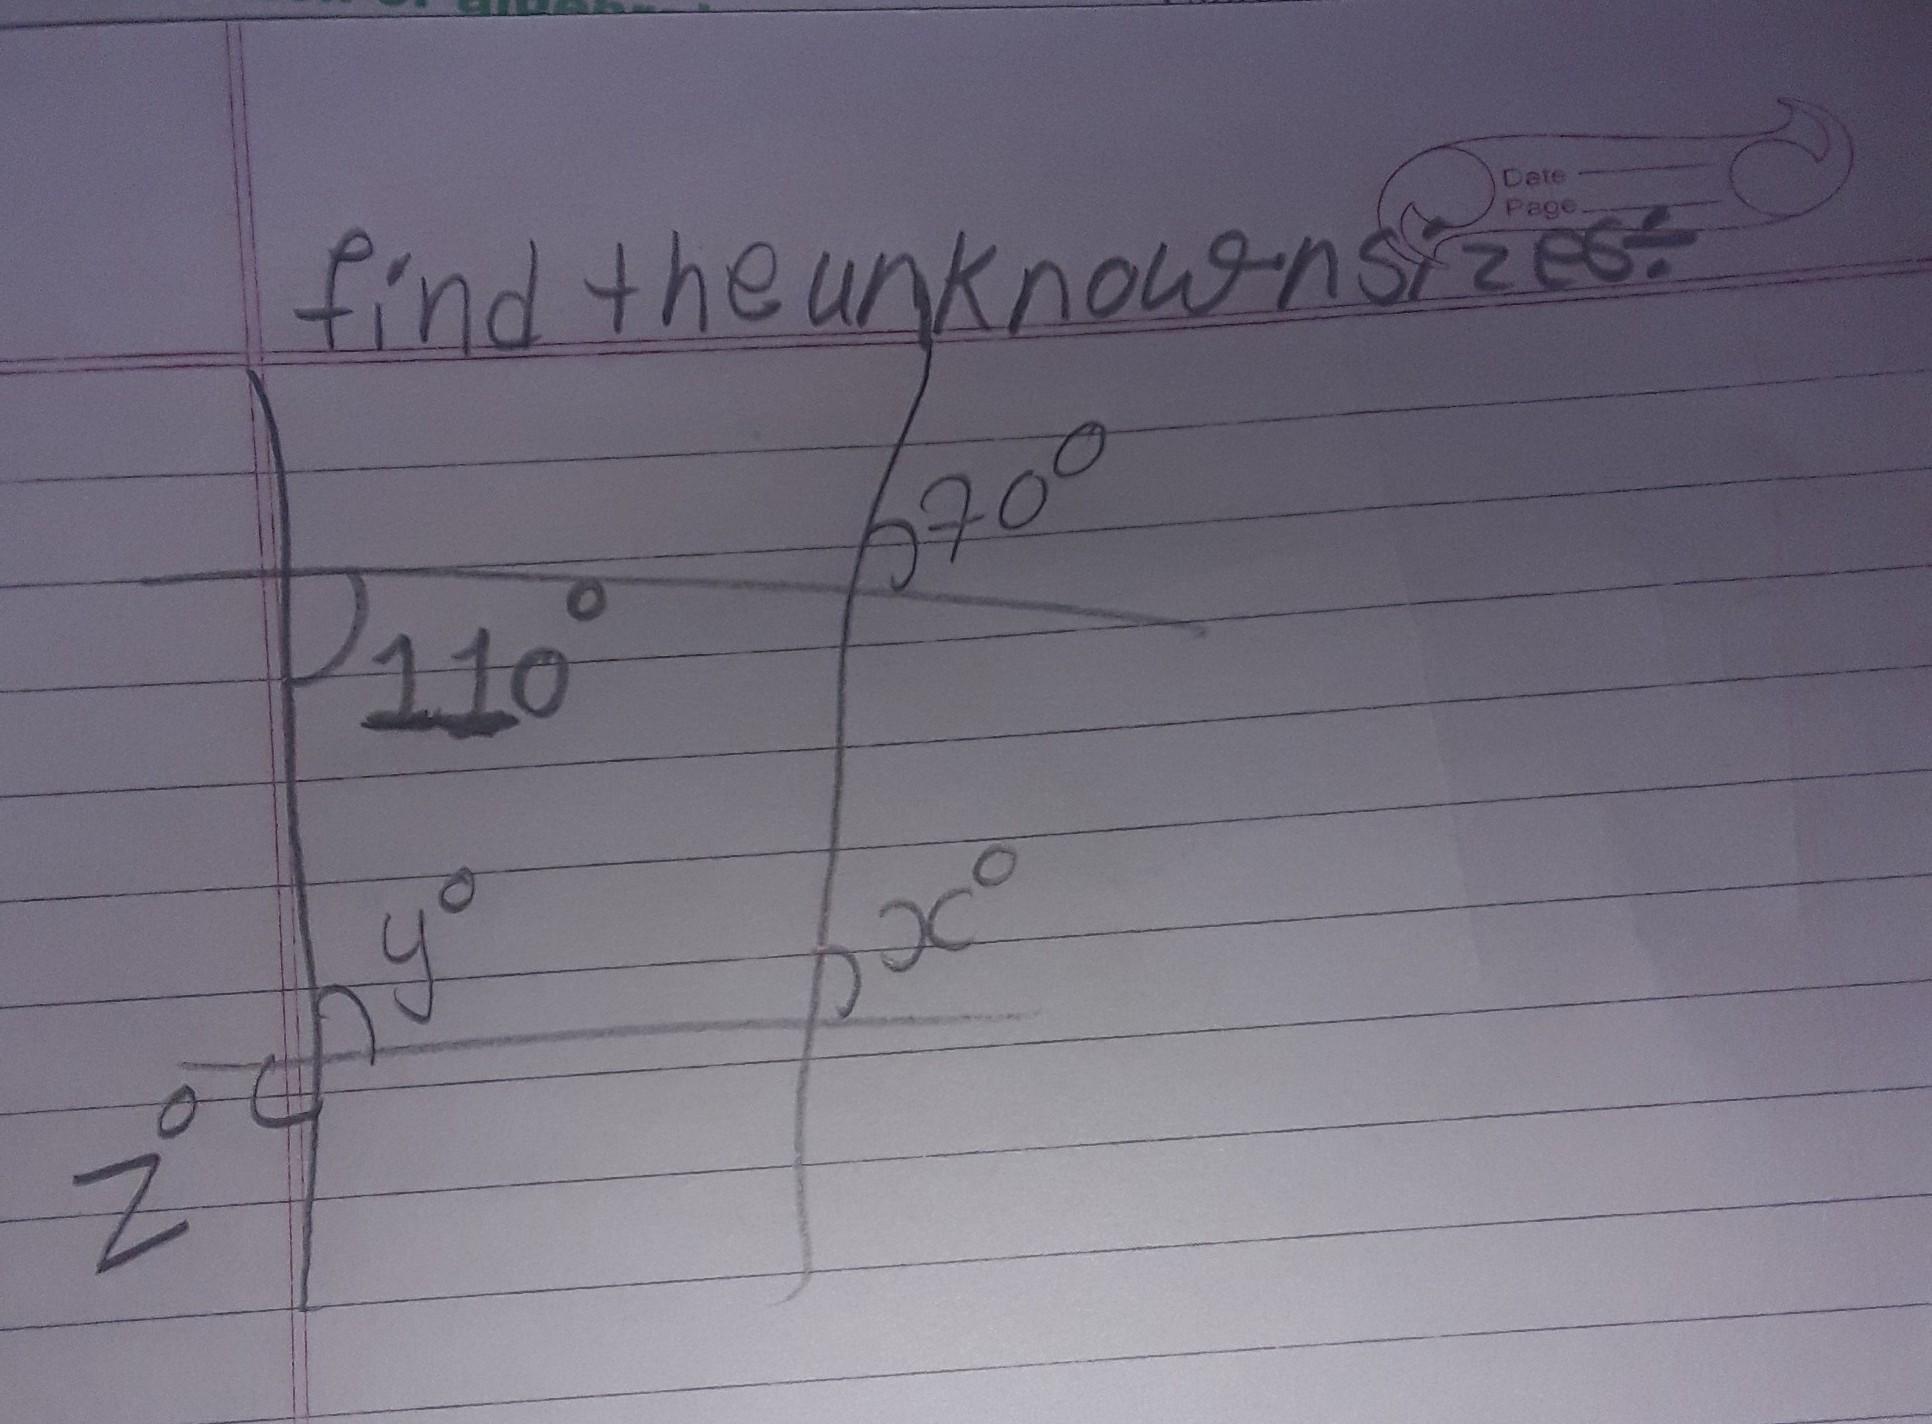 Date
Page
find the unknown sizes:
70°
110°
y°
x°
z°